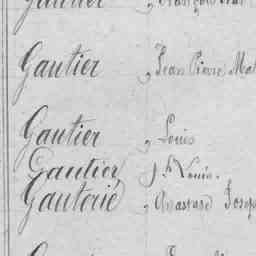 Gautier
Gautier , Jean Pierre Mat
Gautier , Louis
Gautier, J. h Louis.
Gauterie , Anastase Josep